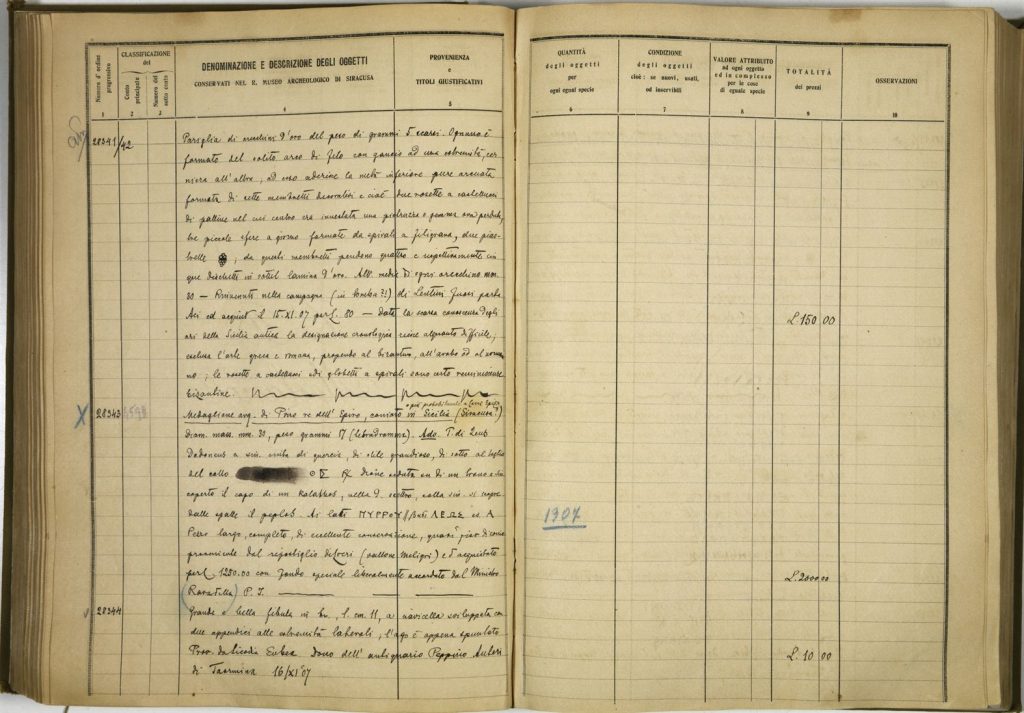 Numero d'ordine progressivo
CLASSIFICAZIONE del
Conto principale
Numero del sotto conto
DENOMINAZIONE E DESCRIZIONE DEGLI OGGETTI
CONSERVATI NEL R. MUSEO ARCHEOLOGICO DI SIRACUSA
PROVENIENZA
e
TITOLI GIUSTIFICATIVI
1 2 3 4 5
28341/42
Pariglia di orecchini d'oro del peso di grammi 5 scarsi. Ognuno è
formato del solito arco di filo con gancio ad una estremità, cer
niera all'altra, ad esso aderisce la metà inferiore pure arcuata
formata di sette membretti decorativi e cioè due rosette a castelluccio
di palline nel cui centro era innestata una pietruzza o gemma ora perduta,
tre piccole sfere a giorno formate da spirali a filigrana, due pias
trelle ; da questi membretti pendono quattro e rispettivamente cin
que dischetti in sottil lamina d'oro. Alt. media di ogni orecchino mm.
30 — Rinvenuti nella campagna (in tomba?!) di Lentini fuori parte
Aci ed acquist. il 15.XI.07 per L. 80 — Data la scarsa conoscenza degli
ori della Sicilia antica la designazione cronologica riesce alquanto difficile;
esclusa l'arte greca e romana, propendo al bizantino, all'arabo od al norman
no; le rosette a castelluccio ed i globetti a spirali sono certo reminiscenze
bizantine.
28343
o più probabilmente a Locri Epizef.
Medaglione arg. di Pirro re dell'Epiro, coniato in Sicilia (Siracusa?)
Diam. mass. mm. 30, peso grammi 17 (tetradramma). Ado. T. di Zeus
Dodoneus a sin. cinta di quercia, di stile grandioso, di sotto al taglio
del collo Dione seduta su di un trono a sin.
coperto il capo di un Kalathos, nella d. scettro, colla sin. si regge
dalle spalle il peplos. Ai lati ΠΥΡΡΟΥ // ΒΑΣΙΛΕΩΣ es. Α
Pezzo largo, completo, di eccellente conservazione, quasi fior di conio
proveniente dal ripostiglio di Locri (vallone Meligri) e acquistato
per L. 1250.00 con fondo speciale liberalmente accordato dal Ministro
(Rava della) P. I.
28344
Grande e bella fibula in br., l. cm. 11, a navicella sviluppata con
due appendici alle estremità laterali; l'ago è appena spuntato
Prov. da Licodia Eubea. Dono dell'antiquario Peppino Auteri
di Taormina 16/XI '07
QUANTITÀ
degli oggetti
per
ogni egual specie
CONDIZIONE
degli oggetti
cioè: se nuovi, usati,
od inservibili
VALORE ATTRIBUITO
ad ogni oggetto
ed in complesso
per le cose
di eguale specie
TOTALITÀ
dei prezzi
OSSERVAZIONI
6 7 8 9 10
L. 150 00
1907
L. 2000.00
L. 10 00